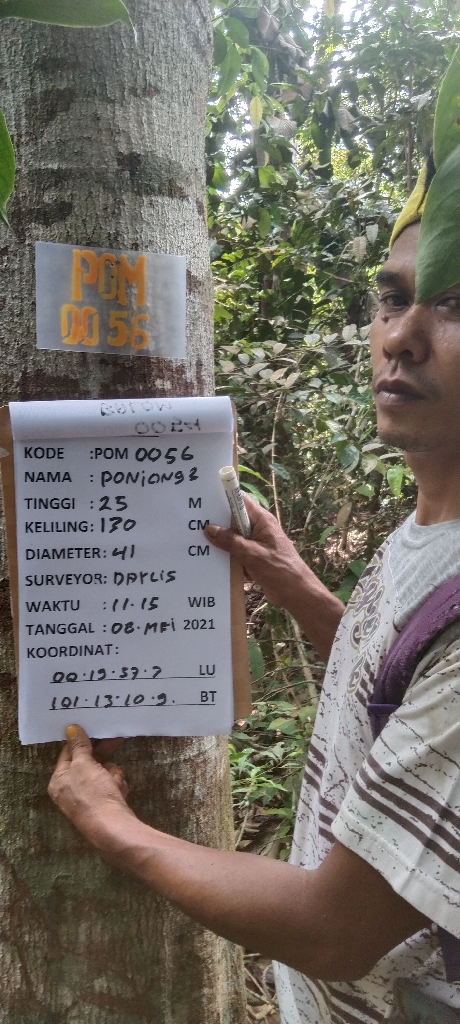 POM
0056
KODE :POM 0056
NAMA : PONiONg2
TINGGI : 25 M
KELILING: 130 CM
DIAMETER: 41 CM
SURVEYOR: DAYLIS
WAKTU : 11.15 WIB
TANGGAL : 08.MEi 2021
KOORDINAT:
00.19.57.7 LU
101.13.10.9. BT